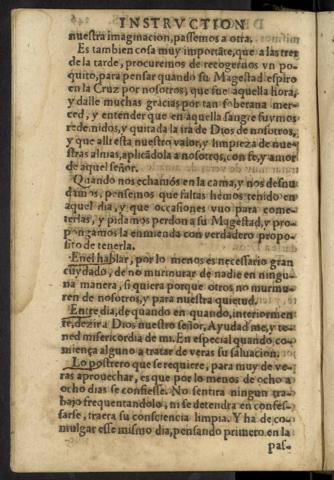 INSTRVCTION
nuestra imaginacion, passemos a otra.
Es tambien cosa muy importãte, que a las tres
de la tarde, procuremos de recogernos vn po-
quito, para pensar quando su Magestad espiro
en la Cruz por nosotros, que fue aquella hora,
y dalle muchas gracias por tan soberana mer-
ced, y entender que en aquella sangre fuymos
redemidos, y quitada la ira de Dios de nosotros,
y que alli esta nuestro valor, y limpieza de nue-
stras almas, aplicãdola a nosotros, con fe, y amor
de aquel señor.
Quando nos echamos en la cama, y nos desnu
damos, pensemos que faltas hemos tenido en
aquel dia, y que occasiones vuo para come-
terlas, y pidamos perdon a su Magestad, y pro-
pongamos la enmienda con verdadero propo-
sito de tenerla.
En el hablar, por lo menos es necessario gran
cuydado, de no murmurar de nadie en ningu-
na manera, si quiera porque otros no murmu-
ren de nosotros, y para nuestra quietud.
Entre dia, de quando en quando, interiormen
te, dezir a Dios nuestro señor, Ayudad me, y te-
ned misericordia de mi. En especial quando co-
miença alguno a tratar de veras su saluacion.
Lo postrero que se requiere, para muy de ve-
ras aprouechar, es que por lo menos de ocho a
ocho dias se confiesse. No sentira ningun tra-
bajo frequentandolo, ni se detendra en confes-
sarse, traera su consciencia limpia. Y ha de co-
mulgar esse mismo dia, pensando primero en la
pas-